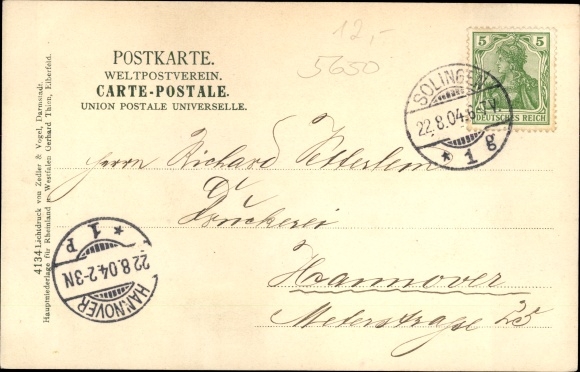 12,-
5650
POSTKARTE.
WELTPOSTVEREIN.
CARTE-POSTALE.
UNION POSTALE UNIVERSELLE.
5 5
DEUTSCHES REICH
SOLINGEN
22.8.04.6-7V.
* 1 g
Herrn Richard
Druckerei
Hannover
Meterstraße 25
HANNOVER
22.8.04.2-3N
* 1 P
4134 Lichtdruck von Zedler & Vogel, Darmstadt.
Hauptniederlage für Rheinland u. Westfalen Gerhard Thien, Elberfeld.